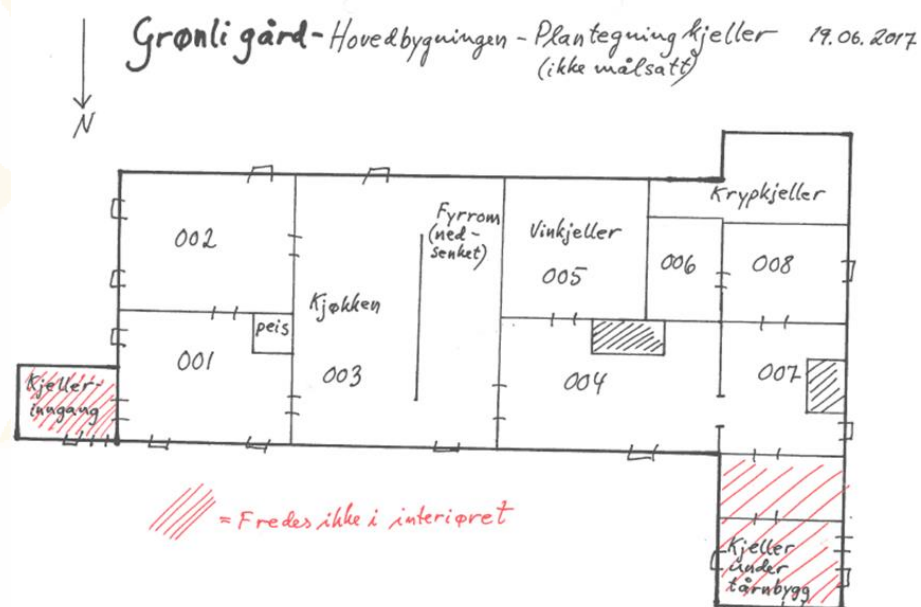 Grønli gård - Hovedbygningen - Plantegning kjeller 19.06.2017
(ikke målsatt)
N
Krypkjeller
Fyrrom
(ned-
senket)
Vinkjeller
002
005
006
008
Kjøkken
peis
001
003
004
007
Kjeller-
inngang
= Fredes ikke i interiøret
Kjeller
under
tårnbygg